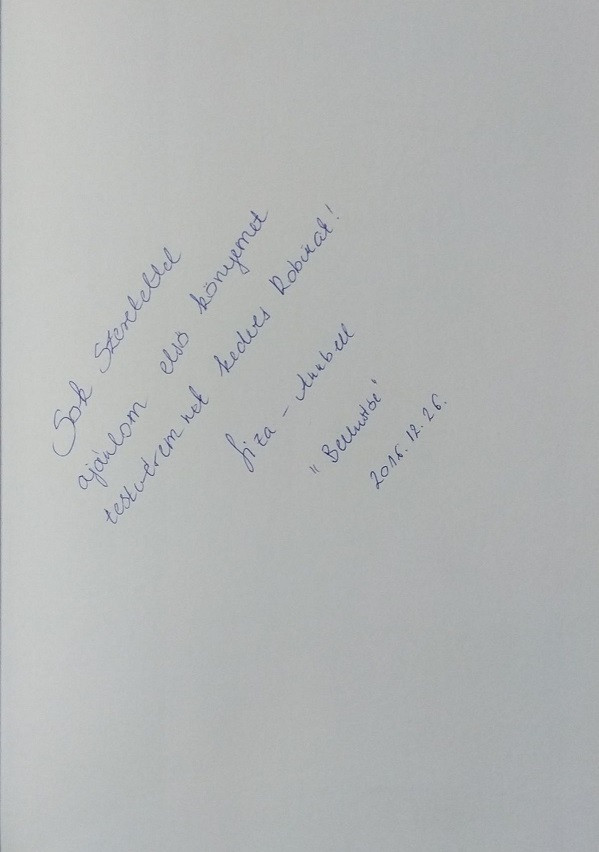 Sok Szeretettel
ajánlom első könyvemet
testvéremnek kedves Robinak!
Liza - Annabell
2016. 12. 26.